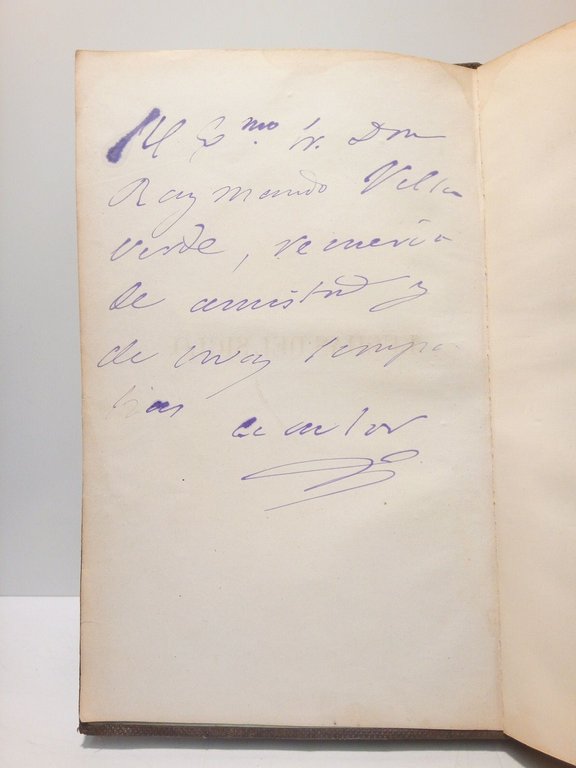 Al Exmo Sr. Don
Raymundo Villa
verde, recuerdo
de amistad y
de muy simpa
tías
el autor